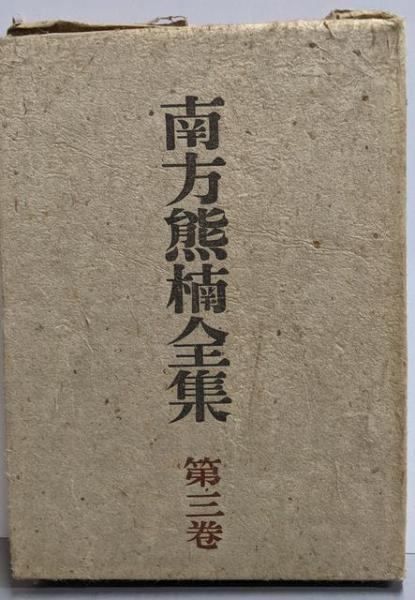 南方熊楠全集
第三巻